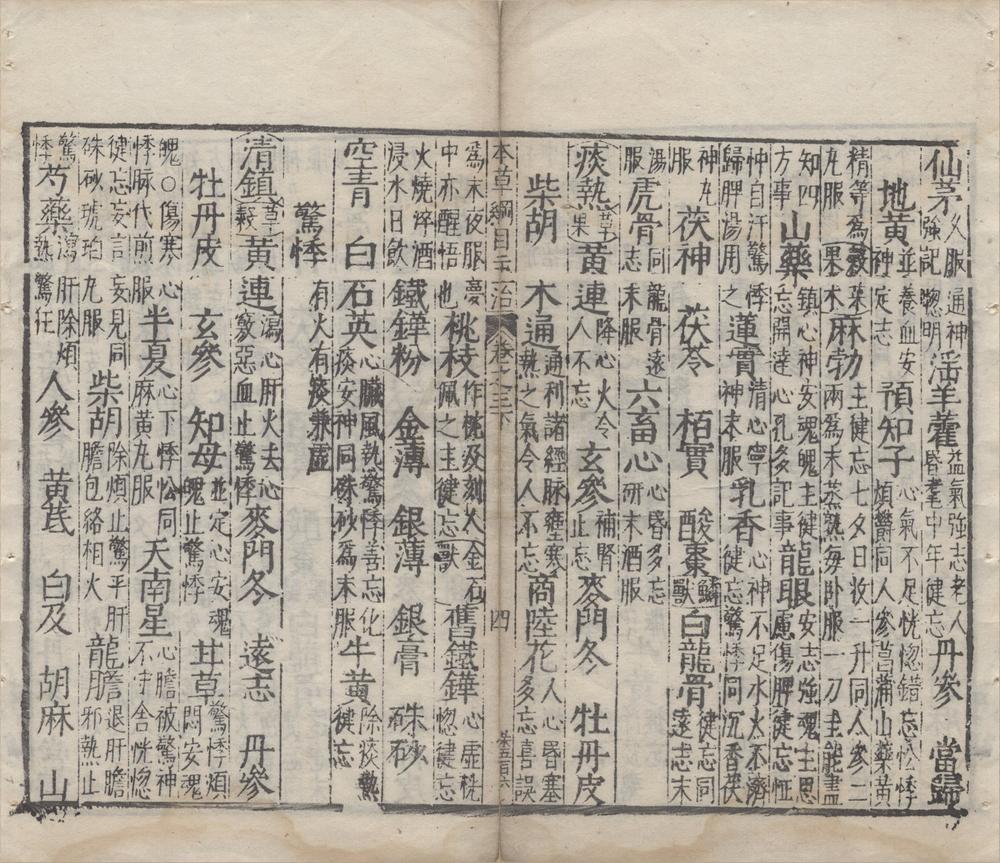 仙茅久服通神強記聰明淫羊藿益氣強志老人昏耄中年健忘丹參 當歸
地黃並養血安神定志預知子心氣不足恍惚錯忘忪悸煩鬱同人參菖蒲山藥黃
精等為丸服穀菜果木麻勃主健忘七夕日收一升同人參二兩為末蒸熟每卧服一刀圭能盡
知四方事山藥鎮心神安魂魄主健忘開達心孔多記事龍眼安志強魂主思慮傷脾健忘怔
忡自汗驚悸歸脾湯用之蓮實清心寧神末服乳香心神不足水火不濟健忘驚悸同沉香茯
神丸服茯神 茯苓 栢實 酸棗鱗獸白龍骨健忘同遠志末
湯服虎骨同龍骨遠志末服六畜心心昏多忘研末酒服
痰熱草果黃連降心火令人不忘玄參補腎止忘麥門冬 牡丹皮
柴胡 木通通利諸經脉壅塞寒熱之氣令人不忘商陸花人心昏塞多忘喜誤
為末夜服夢中亦醒悟也桃枝作枕及刻人佩之主健忘金石獸舊鐵鏵心虛恍惚健忘
火燒淬酒浸水日飲鐵鏵粉 金薄 銀薄 銀膏 硃砂
空青 白石英心臟風熱驚悸善忘化痰安神同硃砂為末服牛黃除痰熱健忘
驚悸有火有痰兼虛
清鎮草穀黃連瀉心肝火去心竅惡血止驚悸麥門冬 遠志 丹參
牡丹皮 玄參 知母並定心安魂魄止驚悸甘草驚悸煩悶安魂
魄○傷寒心悸脉代煎服半夏心下悸忪同麻黃丸服天南星心膽被驚神不守舍恍惚
健忘妄言妄見同硃砂琥珀丸服柴胡除煩止驚平肝膽包絡相火龍膽退肝膽邪熱止
驚悸芍藥瀉肝除煩熱驚狂人參 黃芪 白及 胡麻 山
本草綱目主治 卷之三下 四